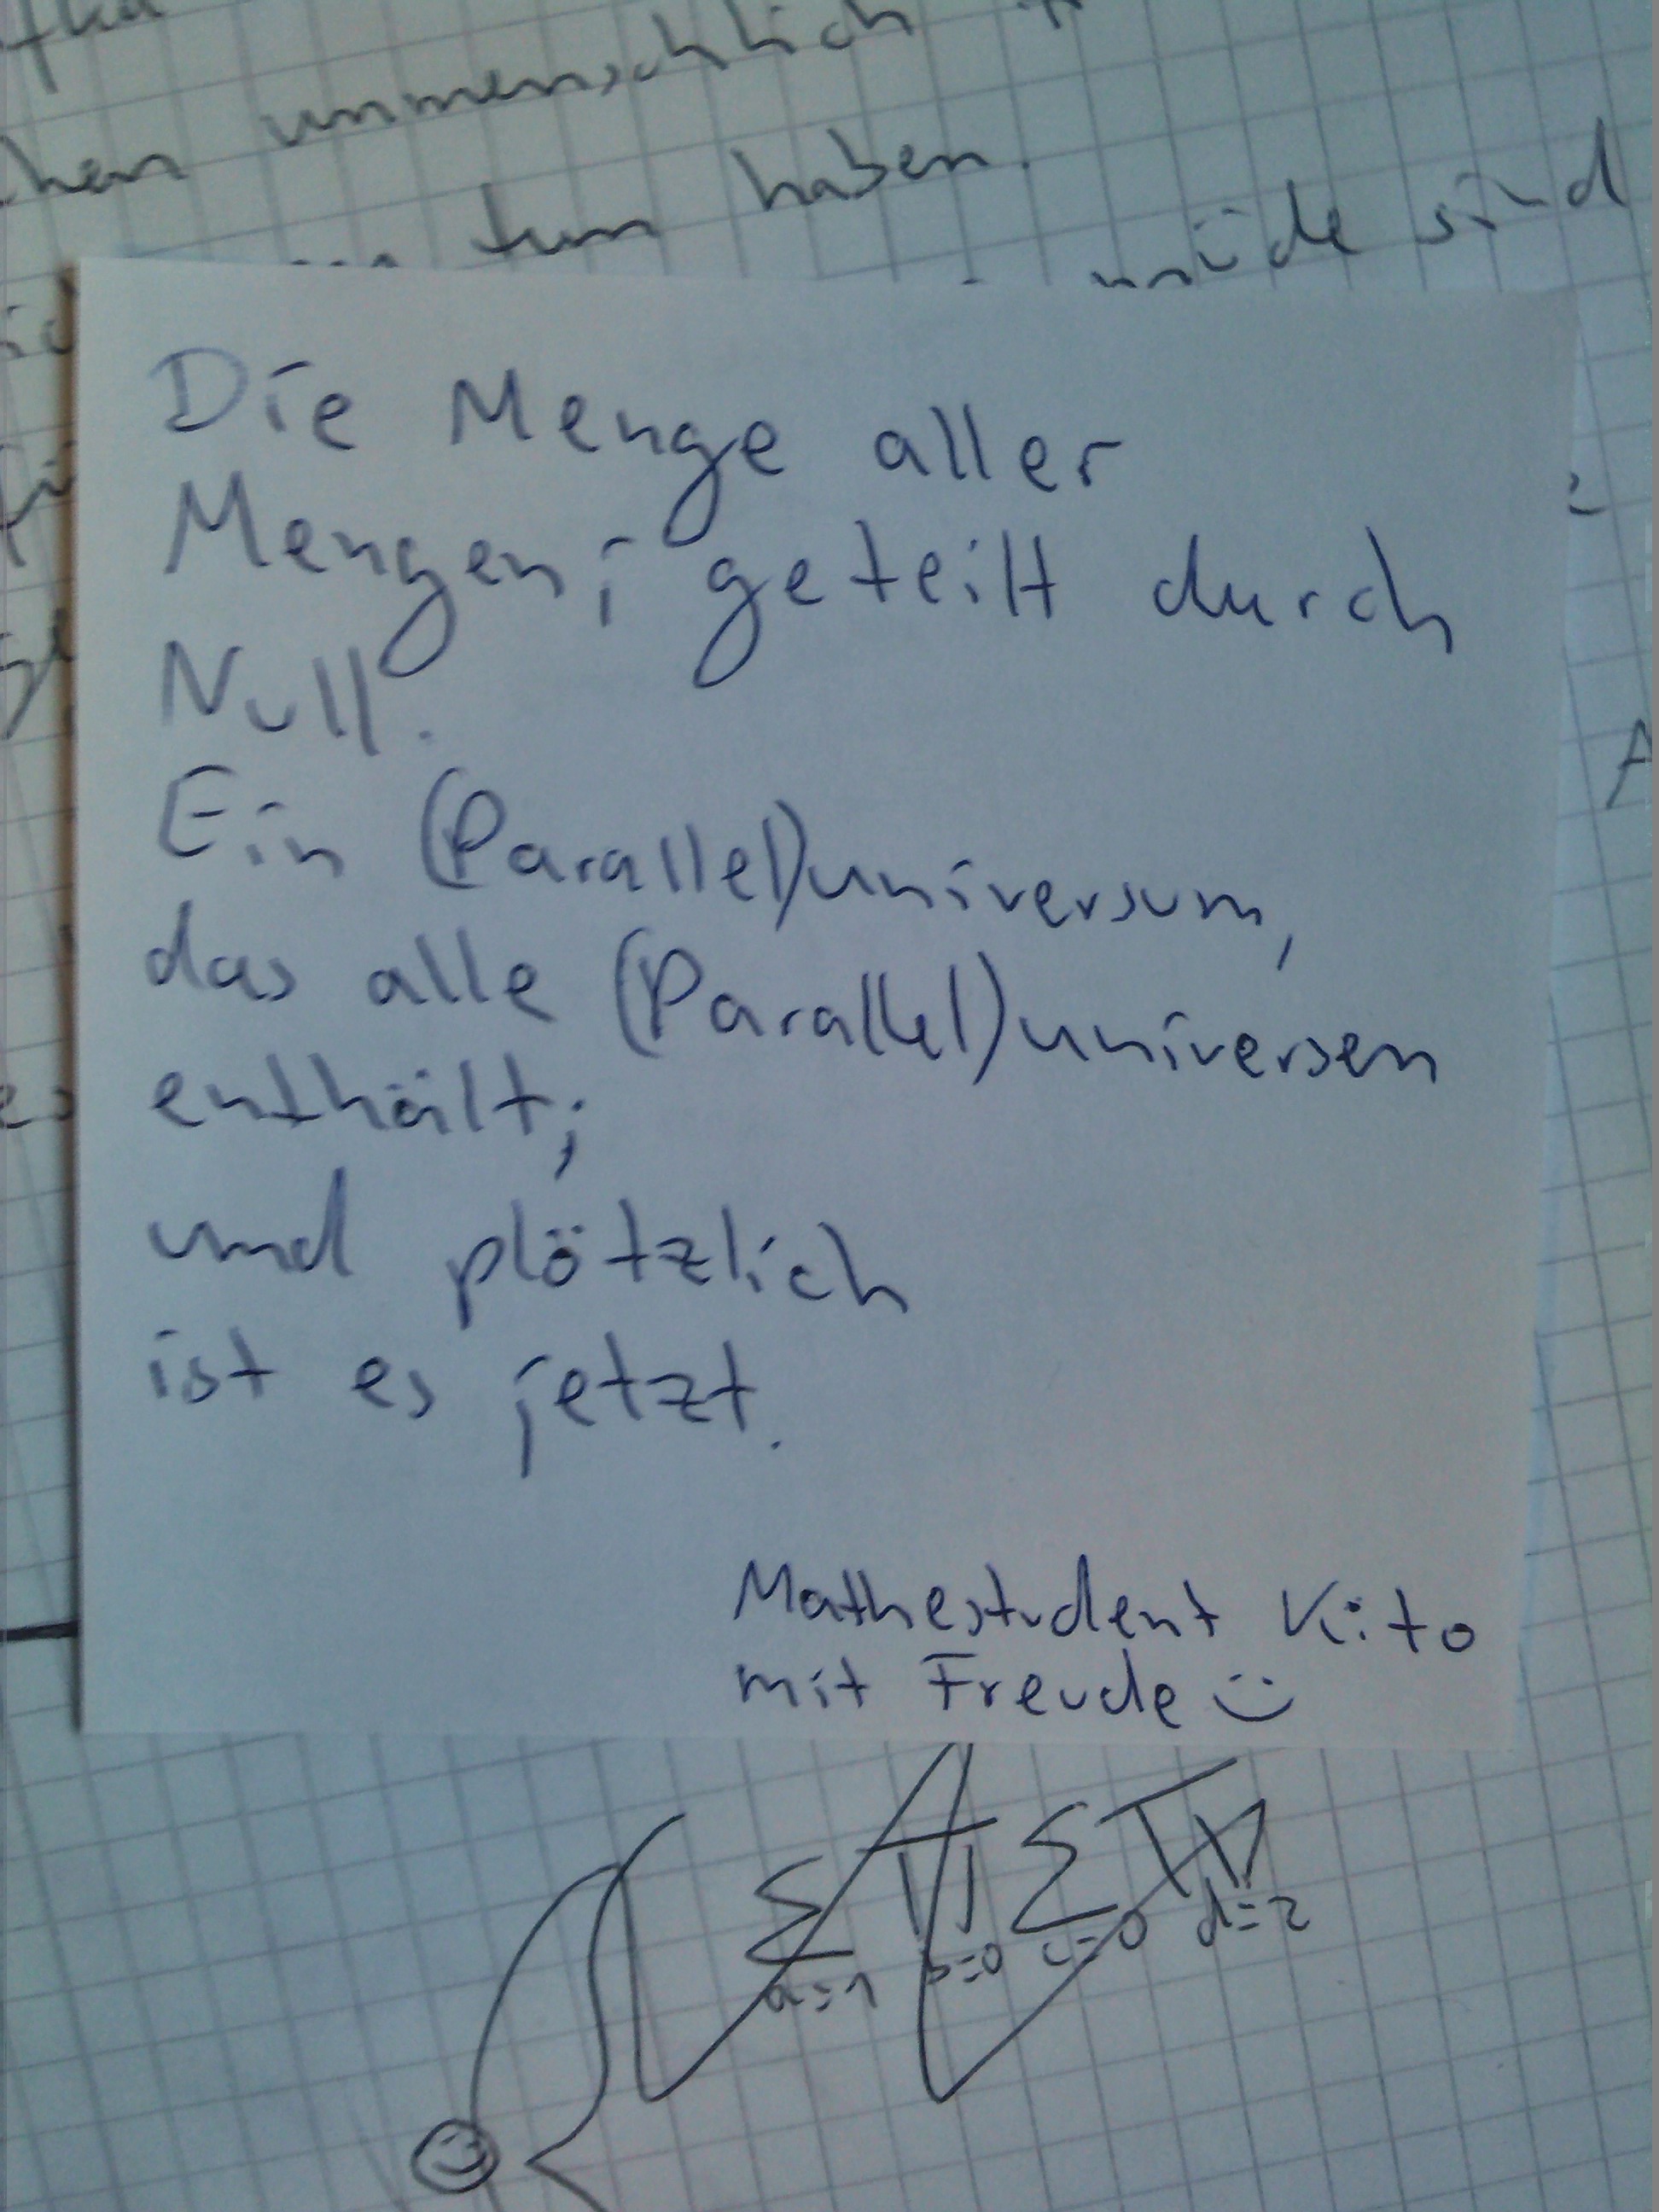 unmenschlich
tun haben.
müde sind
Die Menge aller
Mengen; geteilt durch
Null.
Ein (Parallel)universum,
das alle (Parallel)universen
enthält;
und plötzlich
ist es jetzt.
Mathestudent Kito
mit Freude :)
Σ Π Σ
a=1 b=0 c=0 d=2